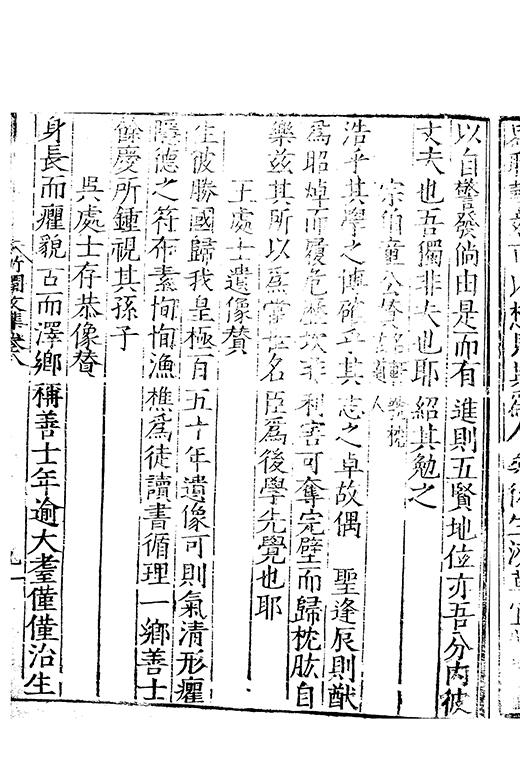 以自警發倘由是而有進則五賢地位亦吾分內彼
丈夫也吾獨非夫也耶紹其勉之
宗伯童公贊
浩乎其學之博確乎其志之卓故偶聖逢辰則猷
為昭焯而履危歷坎非利害可奪完璧而歸枕肱自
樂茲其所以為當世名臣為後學先覺也耶
王處士遺像贊
生彼勝國歸我皇極百五十年遺像可則氣清形癯
隱德之符布素恂恂漁樵為徒讀書循理一鄉善士
餘慶所鍾視其孫子
吳處士存恭像贊
身長而癯貌古而澤鄉稱善士年逾大耋僅僅治生
竹澗文集卷八